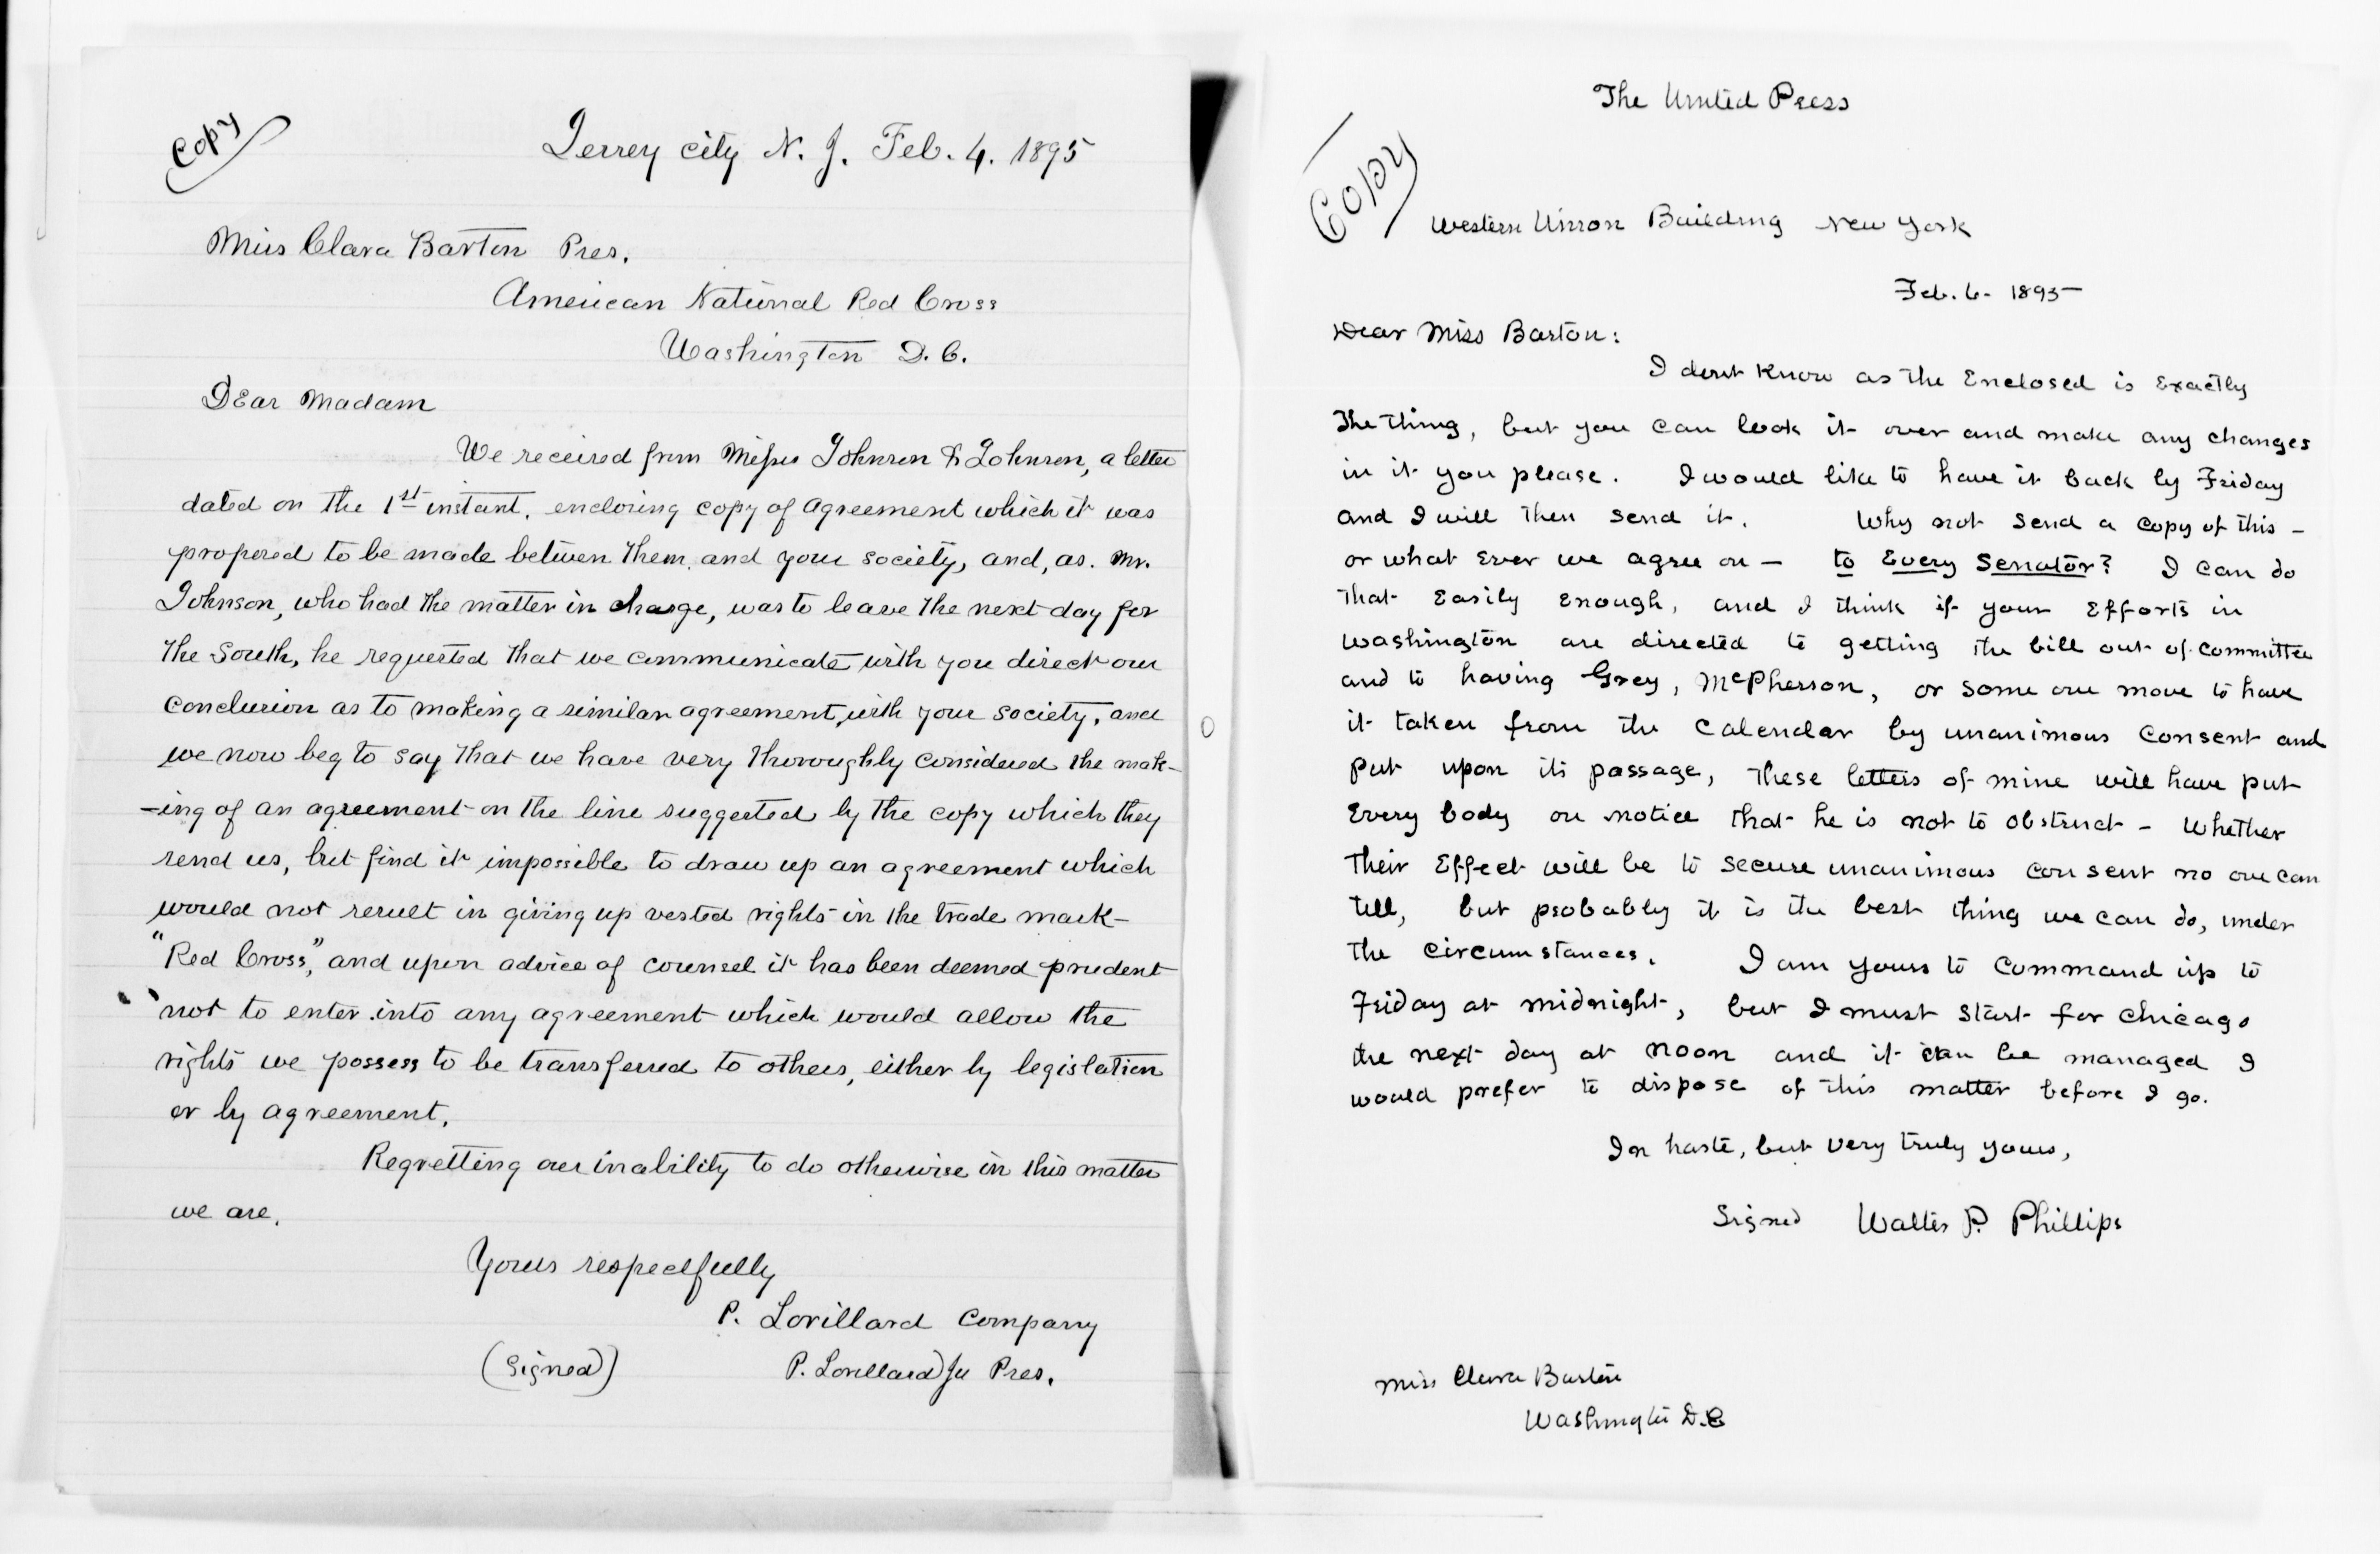 Copy
Jersey city N. J. Feb. 4. 1895
Miss Clara Barton Pres.
American National Red Cross
Washington D. C.
Dear Madam
We received from Messrs Johnson & Johnson, a letter
dated on the 1st instant, enclosing copy of Agreement which it was
proposed to be made between them and your society, and, as. Mr.
Johnson, who had the matter in charge, was to leave the next day for
the South, he requested that we communicate with you direct our
conclusion as to making a similar agreement, with your society, and
we now beg to say that we have very thoroughly considered the mak-
-ing of an agreement on the line suggested by the copy which they
send us, but find it impossible to draw up an agreement which
would not result in giving up vested rights in the trade mark
"Red Cross," and upon advice of counsel it has been deemed prudent
not to enter into any agreement which would allow the
rights we possess to be transferred to others, either by legislation
or by agreement.
Regretting our inability to do otherwise in this matter
we are.
Yours respectfully
P. Lorillard Company
(Signed) P. Lorillard Jr Pres.
The United Press
Copy
Western Union Building New York
Feb. 6- 1895
Dear Miss Barton:
I dont know as the Enclosed is Exactly
the thing, but you can look it over and make any changes
in it you please. I would like to have it back by Friday
and I will then send it. Why not send a copy of this -
or what ever we agree on - to Every Senator? I can do
that Easily Enough, and I think if your Efforts in
Washington are directed to getting the bill out of committee
and to having Grey, McPherson, or some one move to have
it taken from the Calendar by unanimous consent and
put upon its passage, these letters of mine will have put
Every body on notice that he is not to obstruct - Whether
their Effect will be to secure unanimous consent no one can
tell, but probably it is the best thing we can do, under
the circumstances. I am yours to command up to
Friday at midnight, but I must start for Chicago
the next day at noon and if it can be managed I
would prefer to dispose of this matter before I go.
In haste, but very truly yours,
Signed Walter P. Phillips
Miss Clara Barton
Washington D.C